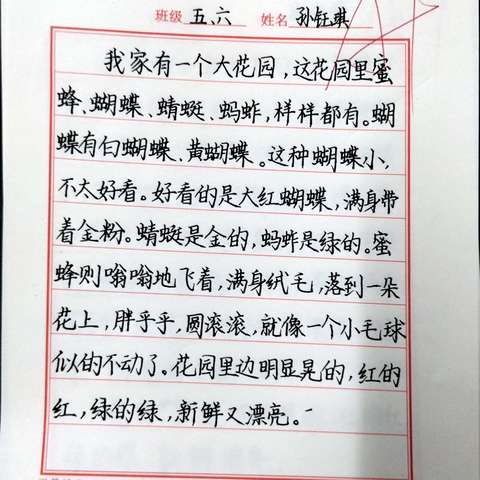 班级 五、六 姓名 孙钰琪
我家有一个大花园，这花园里蜜
蜂、蝴蝶、蜻蜓、蚂蚱，样样都有。蝴
蝶有白蝴蝶、黄蝴蝶。这种蝴蝶小，
不太好看。好看的是大红蝴蝶，满身带
着金粉。蜻蜓是金的，蚂蚱是绿的。蜜
蜂则嗡嗡地飞着，满身绒毛，落到一朵
花上，胖乎乎，圆滚滚，就像一个小毛球
似的不动了。花园里边明显晃的，红的
红，绿的绿，新鲜又漂亮。